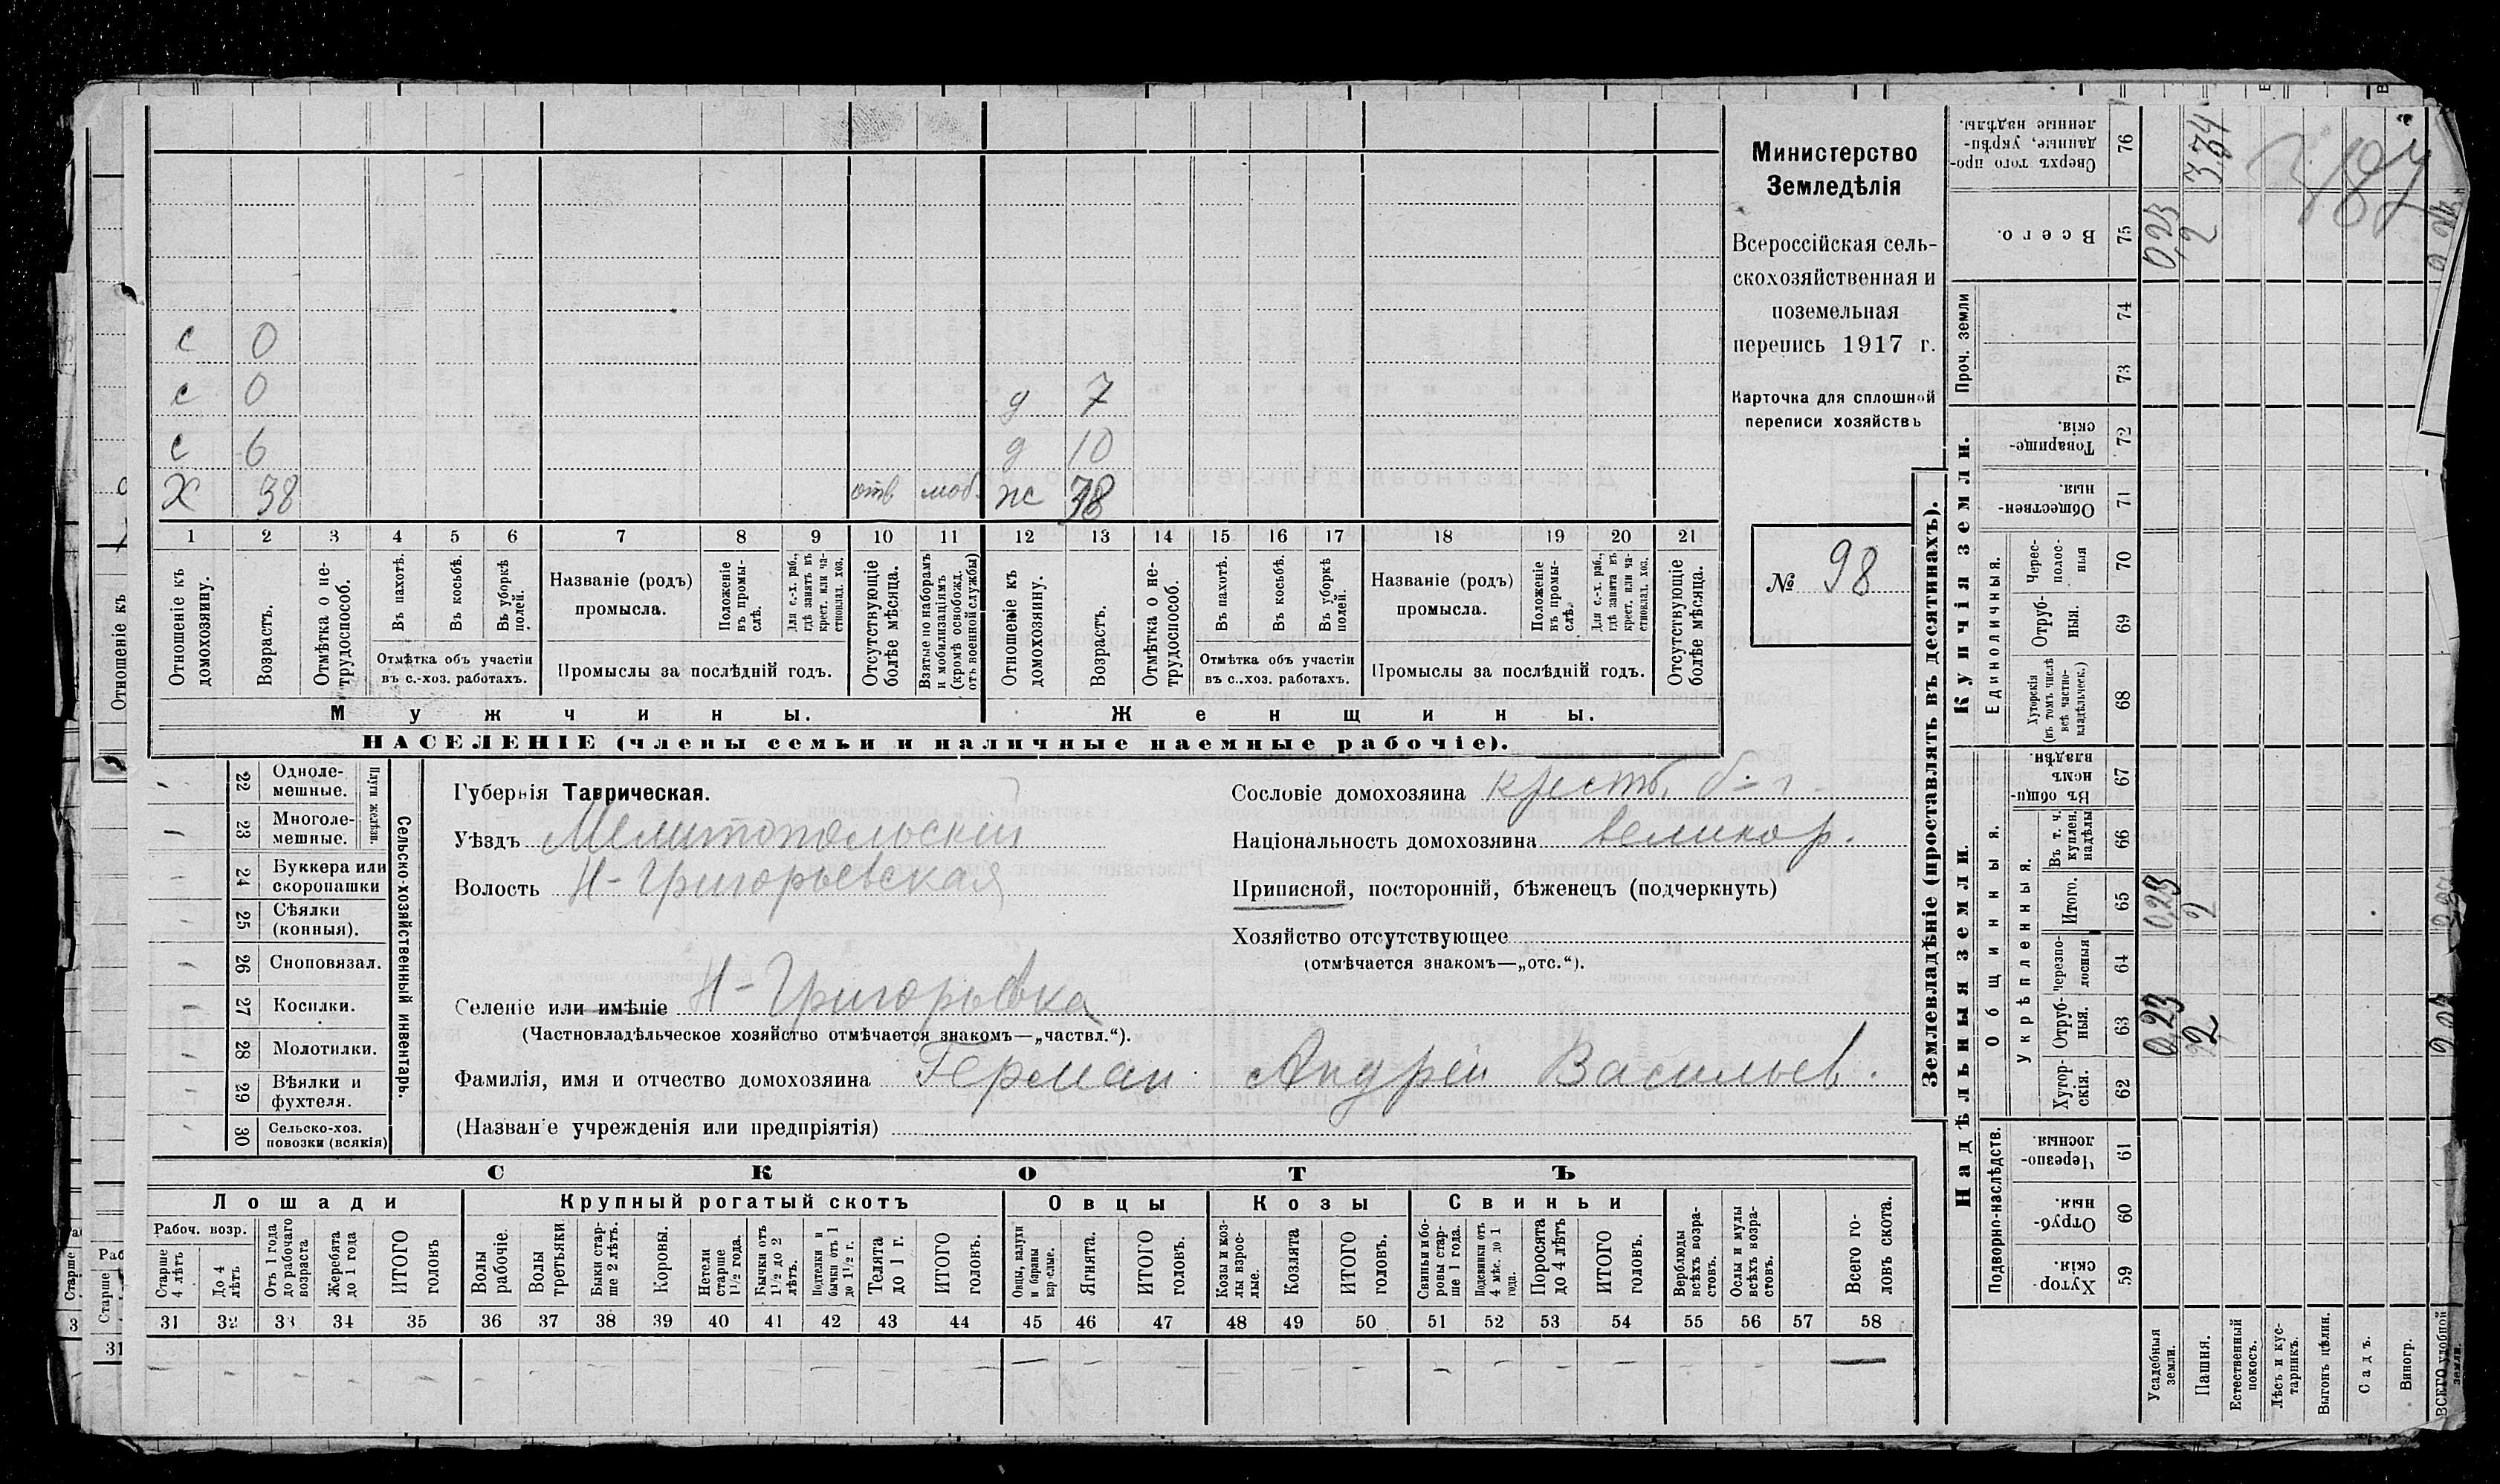 Министерство
Земледѣлія
Всероссійская сель-
скохозяйственная и
поземельная
перепись 1917 г.
Карточка для сплошной
переписи хозяйствъ
№ 98
с 0
с 0 д 7
с 6 д 10
Х 38 отв моб. ж 38
1 2 3 4 5 6 7 8 9 10 11 12 13 14 15 16 17 18 19 20 21
Отношеніе къ домохозяину.
Возрастъ.
Отмѣтка о не-трудоспособ.
Въ пахотѣ.
Въ косьбѣ.
Въ уборкѣ полей.
Отмѣтка объ участіи
въ с.-хоз. работахъ.
Названіе (родъ)
промысла.
Положеніе въ промы-слѣ.
Для с.-х. раб., гдѣ занятъ въ крест. или ча-стновлад. хоз.
Промыслы за послѣдній годъ.
Отсутствующіе болѣе мѣсяца.
Взятые по наборамъ и мобилизаціямъ (кромѣ освобожд. отъ военной службы)
Отношеніе къ домохозяину.
Возрастъ.
Отмѣтка о не-трудоспособ.
Въ пахотѣ.
Въ косьбѣ.
Въ уборкѣ полей.
Отмѣтка объ участіи
въ с..хоз. работахъ.
Названіе (родъ)
промысла.
Положеніе въ промы-слѣ.
Для с.-х. раб., гдѣ занята въ крест. или ча-стновлад. хоз.
Промыслы за послѣдній годъ.
Отсутствующіе болѣе мѣсяца.
Мужчины.
Женщины.
НАСЕЛЕНІЕ (члены семьи и наличные наемные рабочіе).
Сельско-хозяйственный инвентарь.
Плуги желѣзн.
22 Одноле-мешные.
23 Многоле-мешные.
24 Буккера или скоропашки
25 Сѣялки (конныя).
26 Сноповязал.
27 Косилки.
28 Молотилки.
29 Вѣялки и фухтеля.
30 Сельско-хоз. повозки (всякія)
Губернія Таврическая.
Уѣздъ Мелитопольскій
Волость Н-Григорьевская
Селеніе или имѣніе Н-Григорьевка
(Частновладѣльческое хозяйство отмѣчается знакомъ—„частвл.“).
Фамилія, имя и отчество домохозяина Герман Андрей Васильев.
(Названіе учрежденія или предпріятія)
Сословіе домохозяина крестъ.
Національность домохозяина великор.
Приписной, посторонній, бѣженецъ (подчеркнуть)
Хозяйство отсутствующее
(отмѣчается знакомъ—„отс.“).
СКОТЪ
Лошади
Крупный рогатый скотъ
Овцы
Козы
Свиньи
Рабоч. возр.
Старше 4 лѣтъ
До 4 лѣтъ
Отъ 1 года до рабочаго возраста
Жеребята до 1 года
ИТОГО головъ
Волы рабочіе.
Волы третьяки
Быки стар-ше 2 лѣтъ.
Коровы.
Нетели старше 1½ года.
Бычки отъ 1½ до 2 лѣтъ.
Подтелки и бычки отъ 1 до 1½ г.
Телята до 1 г.
ИТОГО головъ.
Овцы, валухи и бараны взрослые.
Ягнята.
ИТОГО головъ.
Козы и коз-лы взрос-лые.
Козлята
ИТОГО головъ.
Свиньи и бо-ровы стар-ше 1 года.
Подсвинки отъ 4 мѣс. до 1 года.
Поросята до 4 лѣтъ
ИТОГО головъ.
Верблюды всѣхъ возра-стовъ.
Ослы и мулы всѣхъ возра-стовъ.
Всего го-ловъ скота.
31 32 33 34 35 36 37 38 39 40 41 42 43 44 45 46 47 48 49 50 51 52 53 54 55 56 57 58
Землевладѣніе (проставлять въ десятинахъ).
Надѣльныя земли.
Купчія земли.
Проч. земли
Подворно-наслѣдств.
Общинныя.
Укрѣпленныя.
Единоличныя.
Сверхъ того про-данные, укрѣп-ленные надѣлы. 76 374
Всего. 75 0,23 2
74
73
Товарище-скія. 72
Обществен-ныя. 71
Черес-полос-ныя 70
Отруб-ныя. 69
Хуторскія (въ томъ числѣ всѣ частно-владѣльческ.) 68
Въ общин-номъ владѣн. 67
Въ т. ч. куплен. надѣлы 66
Итого. 65 0,23 2
Черезпо-лосныя 64
Отруб-ныя. 63 0,23 2
Хутор-скія. 62
Черезпо-лосныя. 61
Отруб-ныя. 60
Хутор-скія. 59
Усадебныя земли.
Пашня.
Естественный покосъ.
Лѣсъ и кус-тарникъ.
Выгонъ цѣлин.
Садъ.
Виногр.
ВСЕГО удобной земли.
Отношеніе къ
Старше